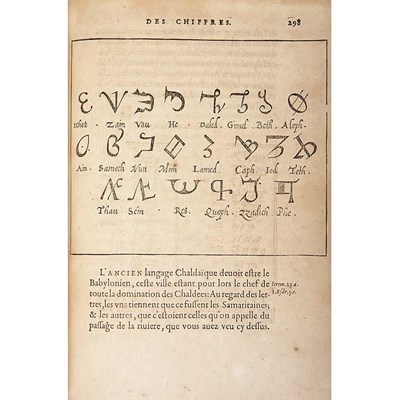 DES CHIFFRES. 298
Chet · Zain Vau · He · Daled. Gimel. Beth. Aleph.
Ain. Samech Nun Mim Lamed. Caph. Iod. Teth.
Thau Scin · Res. Quoph. Zzadich. Phe.
L'ANCIEN langage Chaldaïque deuoit estre le
Babylonien, ceste ville estant pour lors le chef de
toute la domination des Chaldees: Au regard des let-
tres, les vns tiennent que ce fussent les Samaritaines;
& les autres, que c'estoient celles qu'on appelle du
passage de la riuiere, que vous auez veu cy dessus.